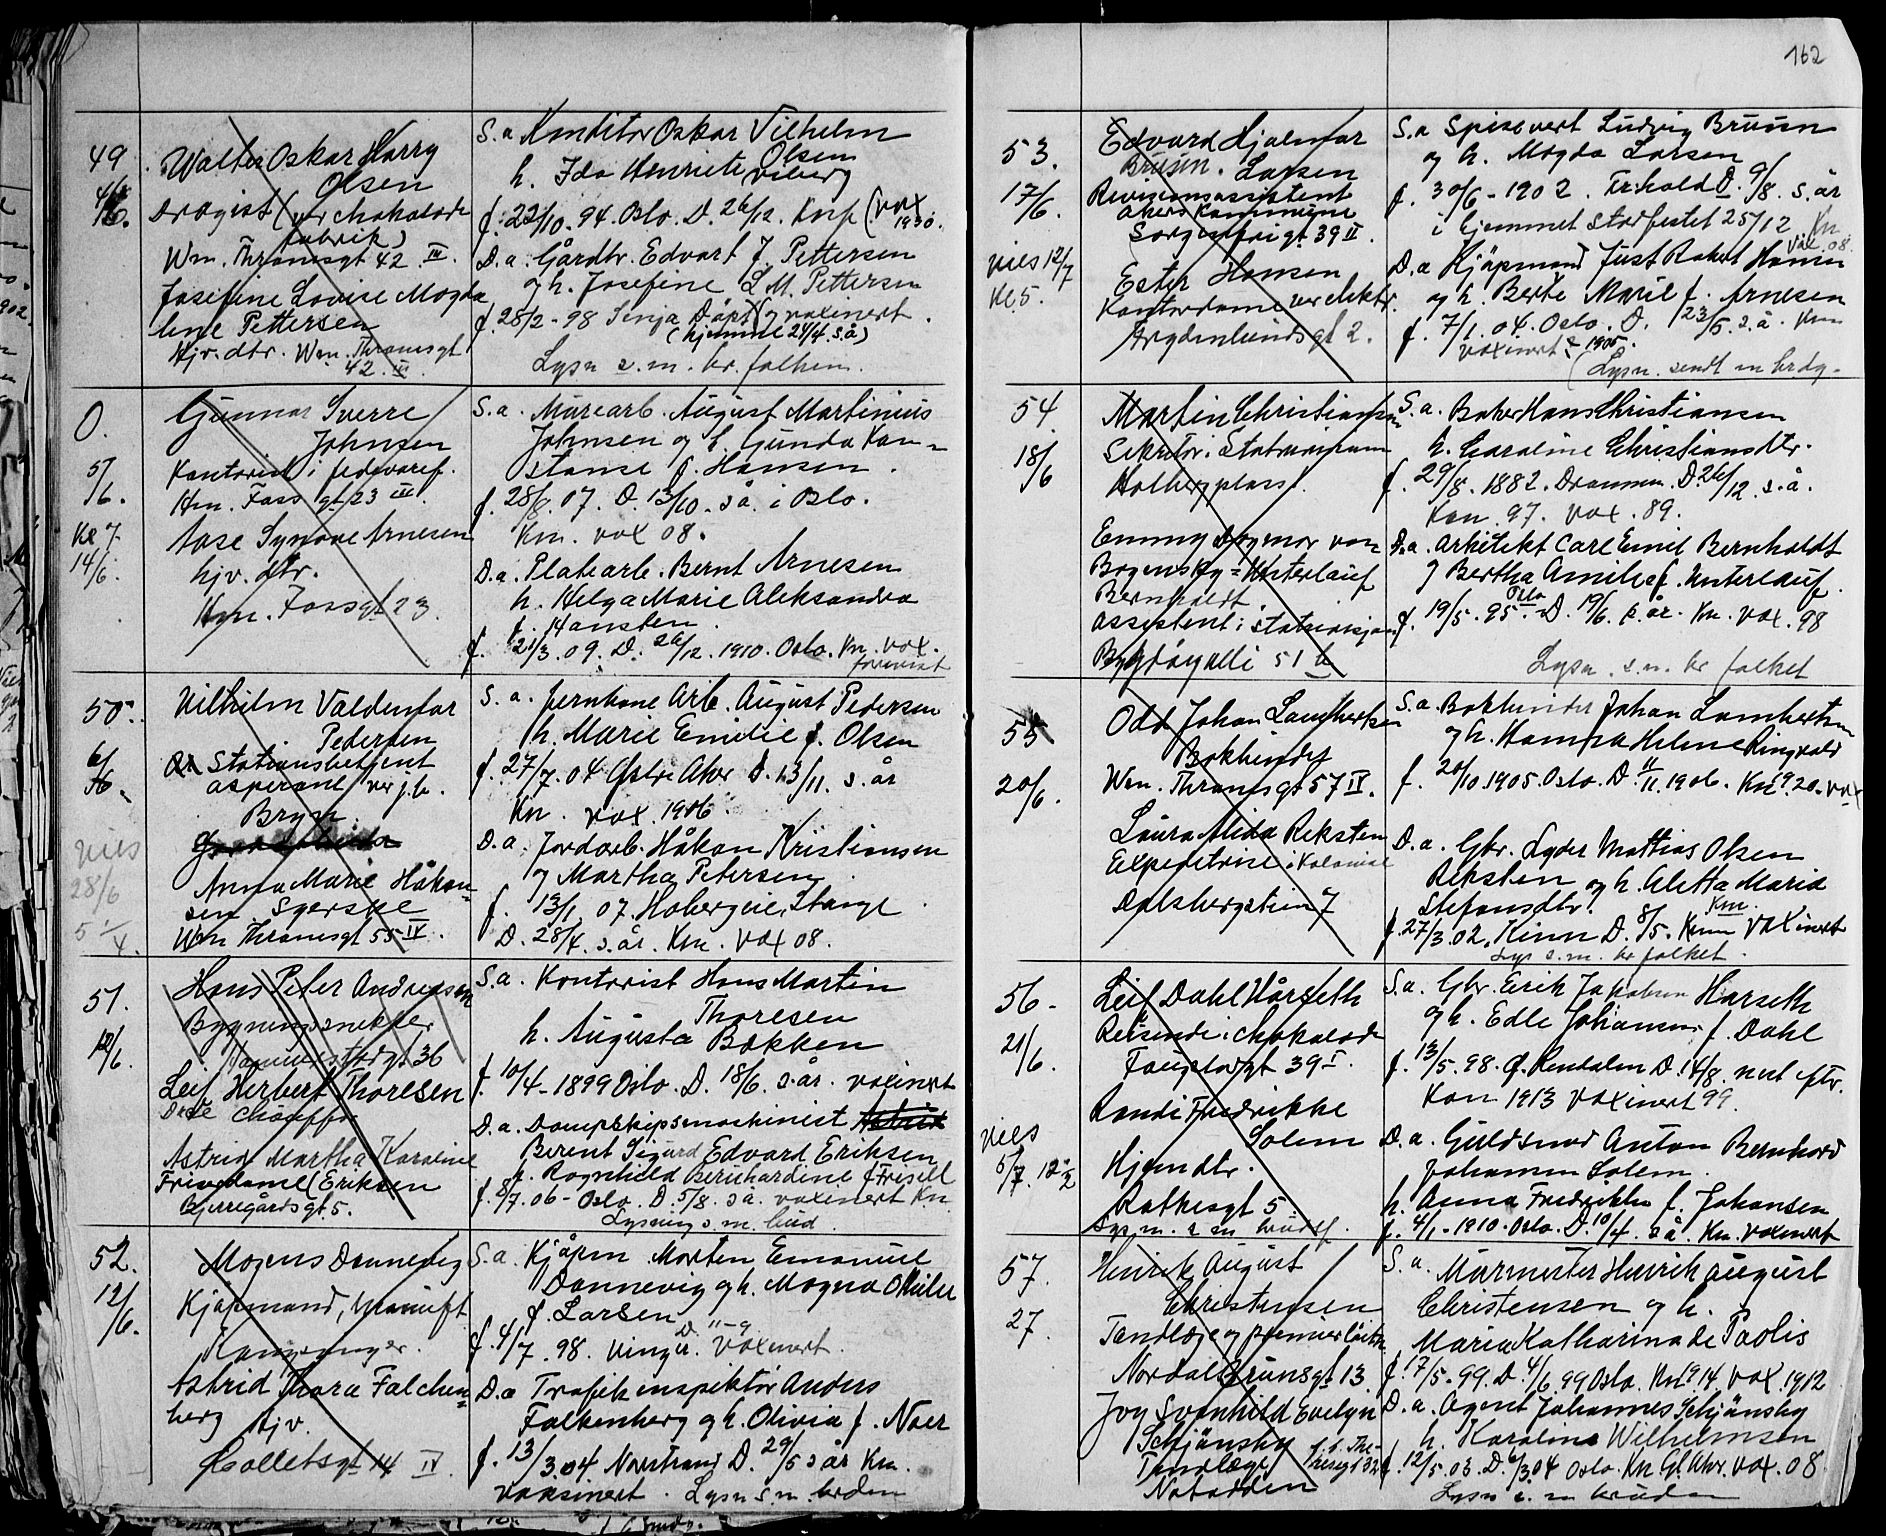 162
49
Walter Oskar Harry
Olsen
Drogist (ver chokolade
fabrik)
Wm. Thranesgt 42 III.
Josefine Lovise Magda
lene Pettersen
Hjv. dtr. Wm. Thranesgt
42. III
S. a Konditor Oskar Vilhelm
Olsen
h. Ida Henriette Viberg
f. 22/10. 94. Oslo. D. 26/12. Konf (vax
1930.
D. a. Gårdbr. Edvart J. Pettersen
og h. Josefine L. M. Pettersen
f. 28/2 - 98 Senja Døpt og vaxinert.
(hjemme 24/4 s. å)
Lysn s. m. br. folken.
O.
5/6.
Kl 7
14/6.
Gunnar Sverre
Johnsen
Kontorist i fedevaref.
Hm. Foss gt 23 III.
Aase Synøve Arnesen
hjv. dtr.
Hm. Fossgt 23
S. a. Murearb. August Martinius
Johnsen og h. Gunda Kon-
stanse f. Hansen.
f. 28/8. 07. D. 13/10. s å. i Oslo.
Kn. vax 08.
D. a. Platearb. Bernt Arnesen
h. Helga Marie Aleksandra
f. Hansten.
f. 21/3. 09. D. 26/12. 1910. Oslo. Kn. vax.
forevist
50.
6/6.
vies
28/6
Vilhelm Valdemar
Pedersen
Stationsbetjent
aspirant ver j.b.
Bryn.
Anna Marie Håkon-
sen Syerske
Wm Thranesgt 55 IV.
S. a. Jernbane Arb. August Pedersen
h. Marie Emilie f. Olsen
f. 27/7. 04 Østre Aker D. 13/11. s. år
Kn. vax. 1906.
D. a. Jordarb. Håkon Kristiansen
og Martha Petersen.
f. 13/1 07. Stange.
D. 28/4. s. år. Kn. vax 08.
51.
12/6.
Hans Peter Andreassen
Bygningssnekker
36
Leif Herbert Thoresen
Chauffør
Astrid Martha Karoline
Eriksen
Bjerregårdsgt. 5.
S. a. Kontorist Hans Martin
Thoresen
h. Augusta Bakken
f. 10/4 - 1899 Oslo. D. 18/6. s. år. vaxinert
D. a. Dampskipsmaskinist
Berent Sigurd Edvard Eriksen
h. Ragnhild Bernhardine f Frisell
f. 8/7. 06 - Oslo. D. 5/8. s å. vaxinert Kn
Lysning s. m. brud.
52.
12/6.
Mogens Dannevig
Kjøpmand,
Kongsvinger.
Astrid Thora Falchen-
berg Hjv.
Colletsgt 14 IV.
S. a. Kjøpm Morten Emanuel
Dannevig og h. Magna
f. Larsen
f. 4/7. 98. Vinger. Vaxinert.
D. a Trafikinspektør Anders
Falkenberg og h. Olivia f. Noer
f. 13/3. 04 Norstrand D. 29/5 s år Kn.
vaksinert. Lysn s. m. bruden
53.
17/6.
vies 12/7
Kl 5.
Edvard Hjalmar
Bruun. Larsen
Revisionsassistent
Akers kommune
Sorgenfrigt 39 II.
Ester Hansen
Kontordame ver elektr.
Frydenlundsgt 2.
S. a Spisevert Ludvig Bruun
og h. Magda Larsen
f. 30/6 - 1902. Tr.hald D. 9/8. s. år
i hjemmet stadfestet 25/12. Kn.
vax. 08.
D. a Kjøpmand Just Robert Hansen
og h. Berte Marie f. Arnesen
f. 7/1. 04. Oslo. D. 23/5. s. å. Kn
vaxinert 1905.
(Lysn. sendt m brdg.
54.
18/6
Martin Christiansen
Sekretær i Statsrevisionen
Holbergplass 1.
Emmy Dagmar von
Bogensky-Unterlauf
Bernholdt.
assistent i statsrevisjonen
Bygdøyalli 51 b
S. a. Baker Hans Christiansen
h. Caroline Christiansdtr.
f. 29/8. 1882. Drammen. D. 26/12 s. å.
Kon. 97. vax. 89.
D. a. Arkitekt Carl Emil Bernholdt
og Bertha Amilie f. Unterlauf
f. 19/5. 95 Oslo D. 19/6. s. år. Kn. vax. 98
Lysn. s. m. br folket
55
20/6.
Odd Johan Lambertsen
Bokbinder
Wm. Thranesgt 57 IV.
Laura Alida Reksten
Expeditrise i Kolonial
Dalsbergstien 7
S. a. Bokbinder Johan Lambertsen
og h. Hanna Helene Ringvold
f. 20/10 1905. Oslo. D. 11/11. 1906. Kn. 1920. vax
D. a. Gbr. Lyder Mattias Olsen
Reksten og h. Aletta Maria
Stefansdtr. Kn.
f. 27/3. 02. Kinn D. 8/5. Kinn Vaxinert
Lys s. m. br folket.
56.
21/6.
vies
5/7. 12 1/2
Leif Dahl Hårseth
Reisende i chokolade
39 I.
Randi Fredrikke
Solem
Hjemdtr.
Rathkesgt 5.
S. a. Gbr. Erik Jakobsen Harseth
og h. Edle Johansen f. Dahl
f. 13/5. 98. Ø. Rendalen D. 14/8. next eftr.
Kon 1913 Vaxinert 99.
D. a. Guldsmed Anton Bernhard
Johannes Solem.
h. Anna Fredrikke f. Johansen
f. 4/1 - 1910. Oslo. D. 10/4. s å. Kn. Vaxinert
57.
27.
Henrik August
Christensen
Tandlæge og premierløitn
Nordal Brunsgt 13
Joy Svanhild Evelyn
Schjånsby
Tandlæge
Notodden
S. a. Murmester Henrik August
Christensen og h.
Maria Katharina de Paolis
f. 17/5. 99. D. 4/6. 99 Oslo. Kn. 1914. vax. 1912
D. a. Agent Johannes Schjånsby
h. Karoline Wilhelmsen
f. 12/5. 03. D. 6/3. 04 Oslo. Kn Gl. Aker. vax. 08.
Lysn s. m bruden